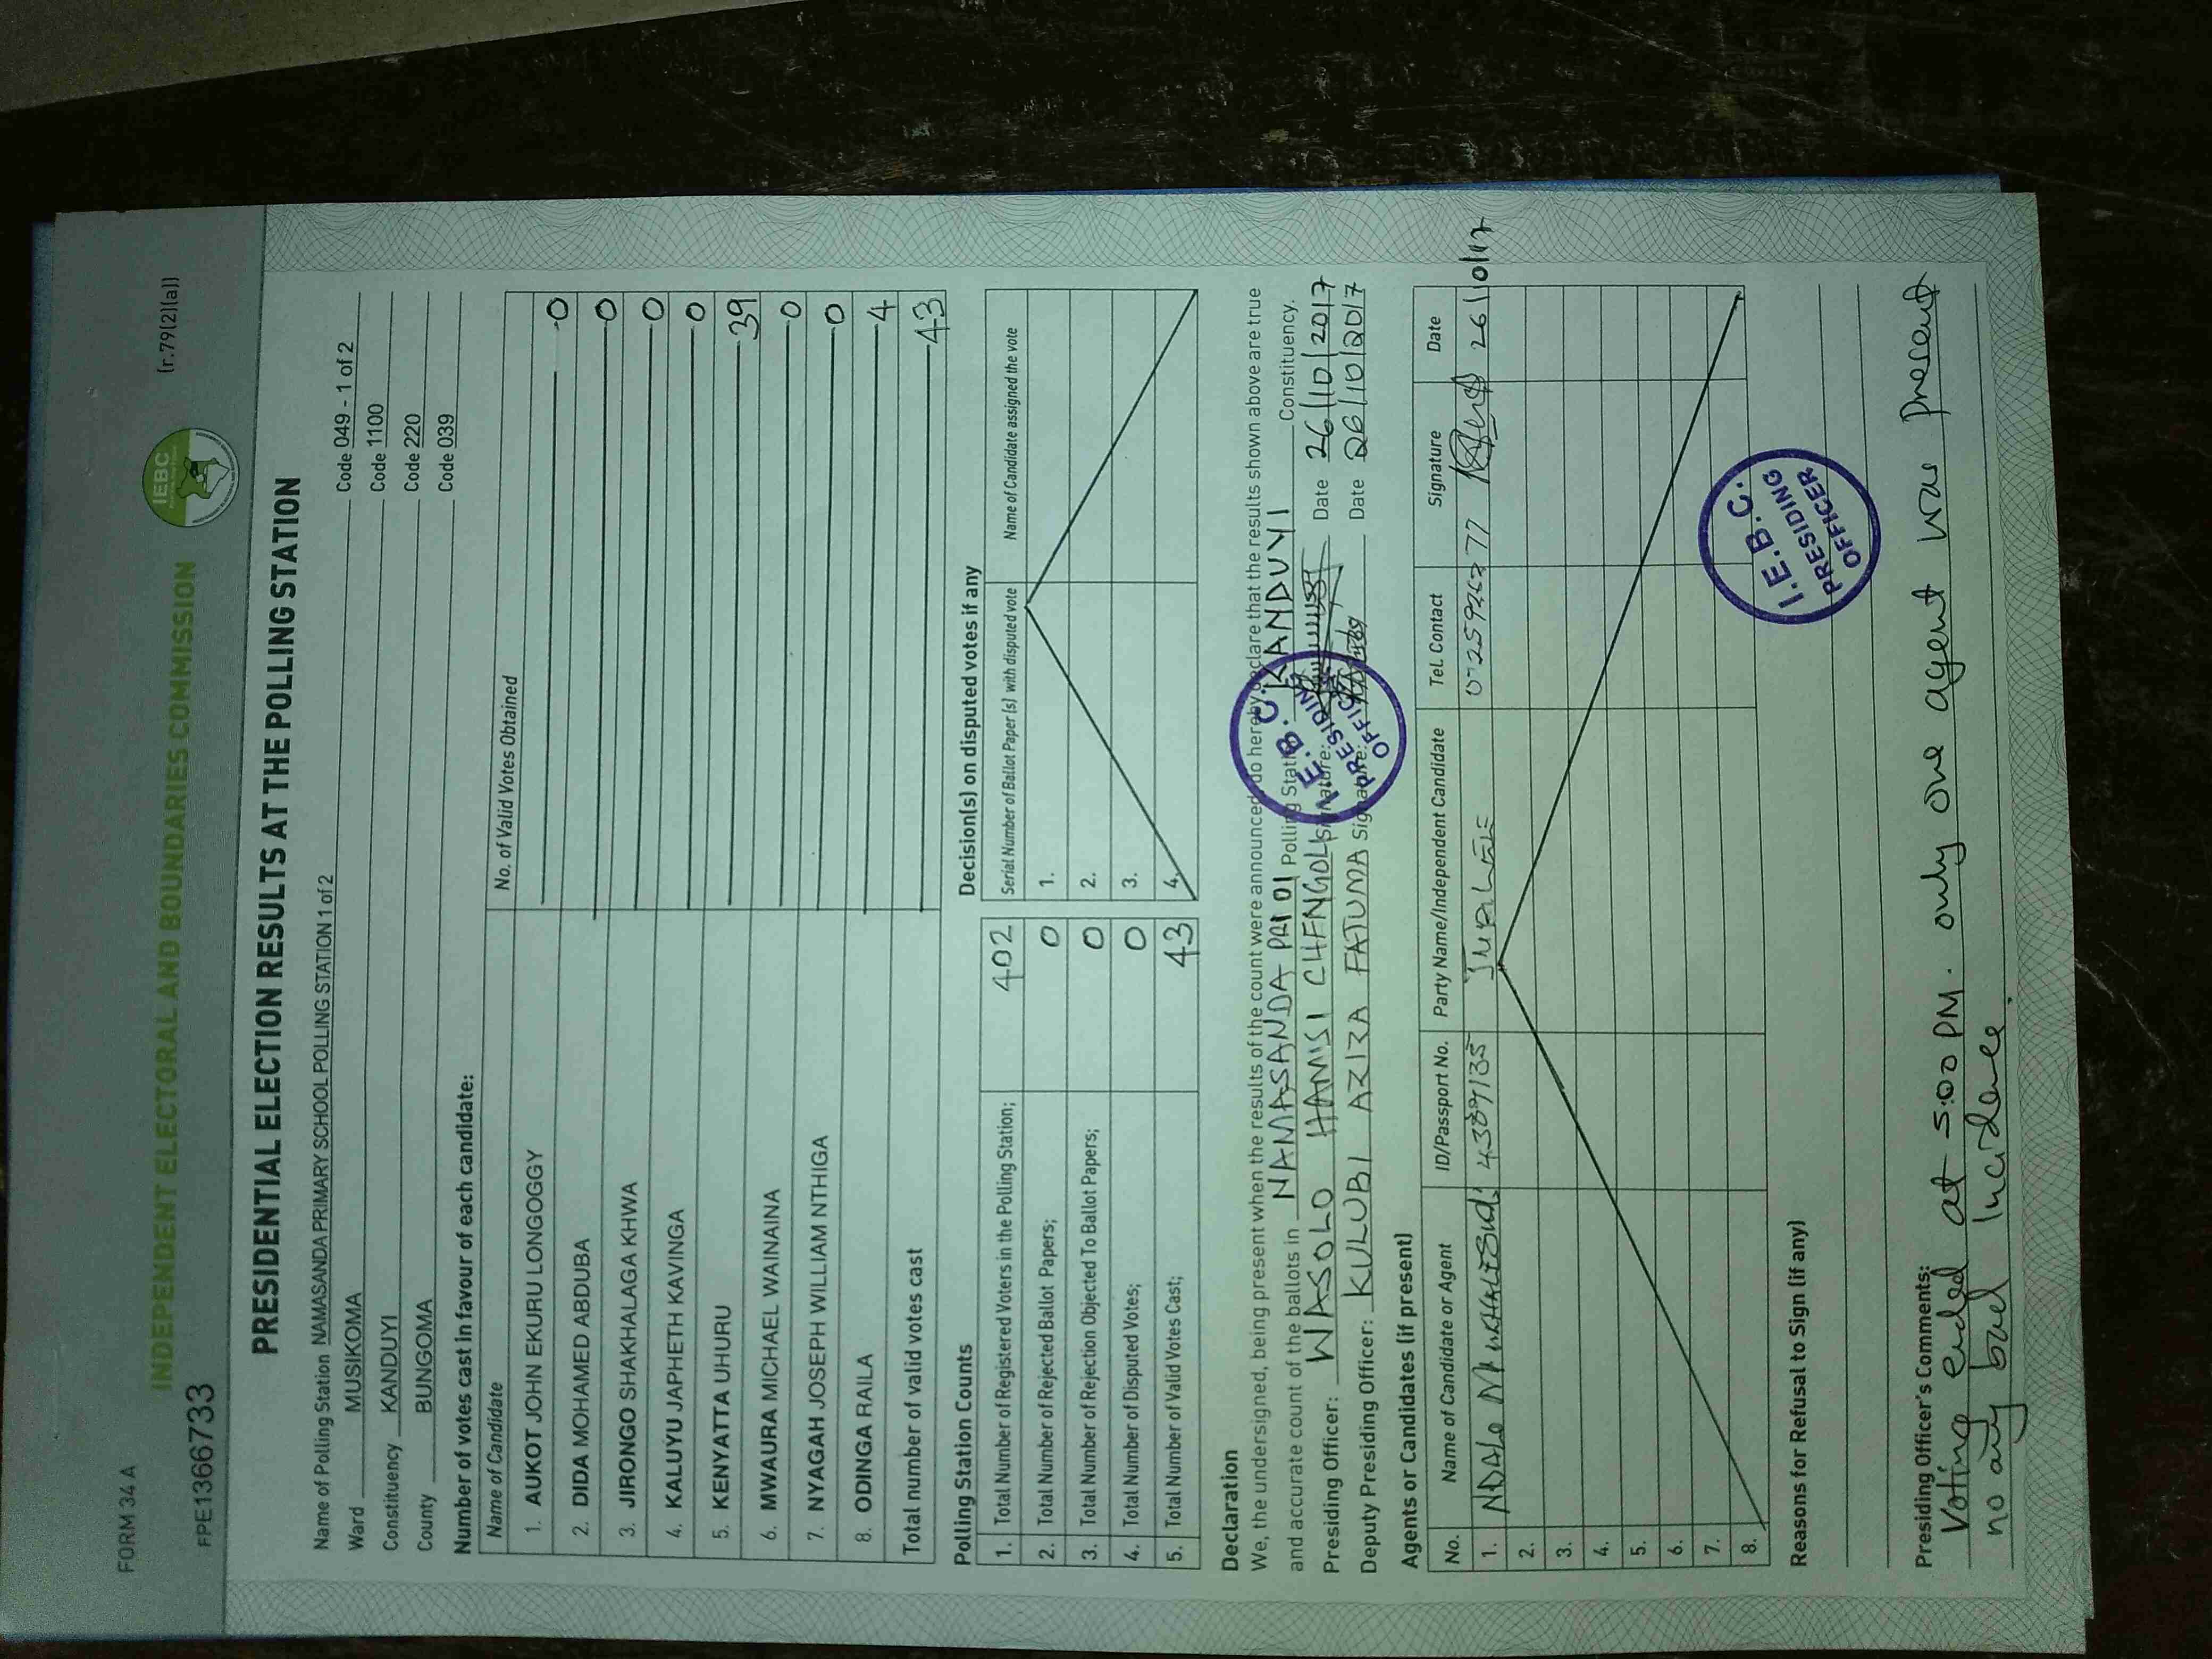 FORM 34 A
(r.79(2)(a))
FPE1366733
INDEPENDENT ELECTORAL AND BOUNDARIES COMMISSION
IEBC
PRESIDENTIAL ELECTION RESULTS AT THE POLLING STATION
Name of Polling Station NAMASANDA PRIMARY SCHOOL POLLING STATION 1 of 2 Code 049 - 1 of 2
Ward MUSIKOMA Code 1100
Constituency KANDUYI Code 220
County BUNGOMA Code 039
Number of votes cast in favour of each candidate:
Name of Candidate No. of Valid Votes Obtained
1. AUKOT JOHN EKURU LONGOGGY 0
2. DIDA MOHAMED ABDUBA 0
3. JIRONGO SHAKHALAGA KHWA 0
4. KALUYU JAPHETH KAVINGA 0
5. KENYATTA UHURU 39
6. MWAURA MICHAEL WAINAINA 0
7. NYAGAH JOSEPH WILLIAM NTHIGA 0
8. ODINGA RAILA 4
Total number of valid votes cast 43
Polling Station Counts
1. Total Number of Registered Voters in the Polling Station; 402
2. Total Number of Rejected Ballot Papers; 0
3. Total Number of Rejection Objected To Ballot Papers; 0
4. Total Number of Disputed Votes; 0
5. Total Number of Valid Votes Cast; 43
Decision(s) on disputed votes if any
Serial Number of Ballot Paper (s) with disputed vote Name of Candidate assigned the vote
1.
2.
3.
4.
Declaration
We, the undersigned, being present when the results of the count were announced, do hereby declare that the results shown above are true
and accurate count of the ballots in NAMASANDA PRI 01 Polling Station KANDUYI Constituency.
Presiding Officer: WASOLO HAMISI Signature: Date 26/10/2017
Deputy Presiding Officer: KULUBI AZIZA FATUMA Signature: Date 26/10/2017
I.E.B.C. PRESIDING OFFICER
Agents or Candidates (if present)
No. Name of Candidate or Agent ID/Passport No. Party Name/Independent Candidate Tel. Contact Signature Date
1. NDALO 26/10/17
2.
3.
4.
5.
6.
7.
8.
I.E.B.C. PRESIDING OFFICER
Reasons for Refusal to Sign (if any)
Presiding Officer's Comments:
Voting ended at 5:00 PM. only one agent was present
no any bad incidence.